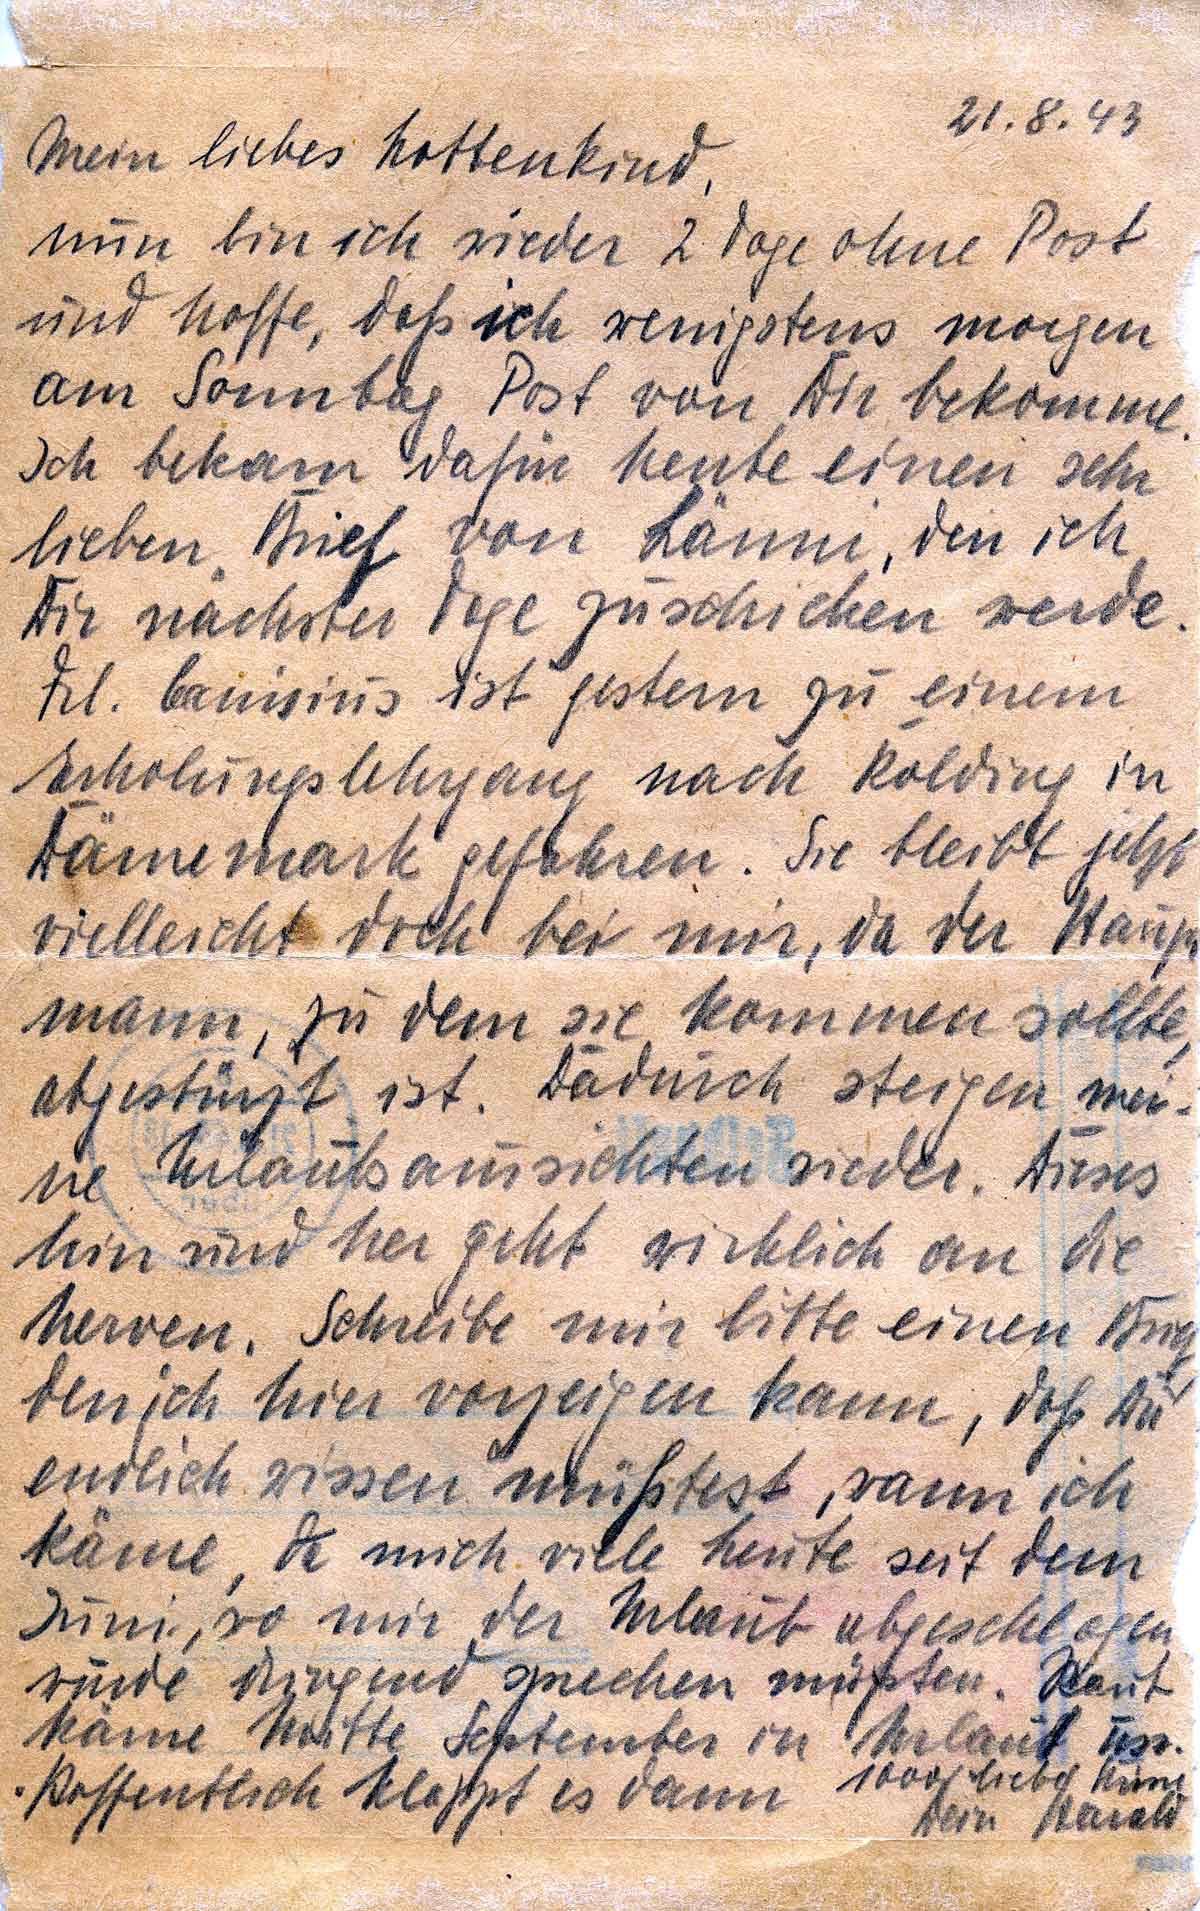 21.8.43
Mein liebes Mottenkind,
nun bin ich wieder 2 Tage ohne Post
und hoffe, daß ich wenigstens morgen
am Sonntag Post von Dir bekomme.
Ich bekam dafür heute einen sehr
lieben Brief von Länni, den ich
Dir nächster Tage zuschicken werde.
Frl. Canisius ist gestern zu einem
Erholungslehrgang nach Kolding in
Dänemark gefahren. Sie bleibt jetzt
vielleicht doch bei mir, da der Haupt
mann, zu dem sie kommen sollte,
abgestürzt ist. Dadurch steigen mei-
ne Urlaubsaussichten wieder. Dieses
hin und her geht wirklich an die
Nerven. Schreibe mir bitte einen Brief,
den ich hier vorzeigen kann, daß Du
endlich wissen müßtest, wann ich
käme, da mich viele heute seit dem
Juni, wo mir der Urlaub abgeschlagen
wurde dringend sprechen müßten.
käme Mitte September in Urlaub usw.
Hoffentlich klappt es dann 1000 liebe
Dein Harald